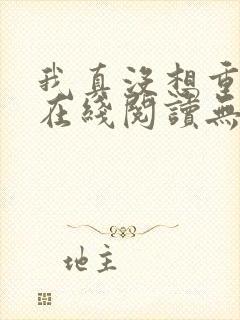 我真没想重
在綫閱讀無
地主